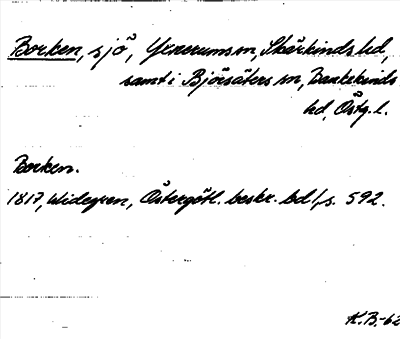 Borken, sjö, Yxnerums sn, Skärkinds hd,
samt i Björsäters sn, Bankekinds
hd, Östg. l.
Borken.
1817, Widegren, Östergötl. beskr. bd 1, s. 592.
K.B.-62